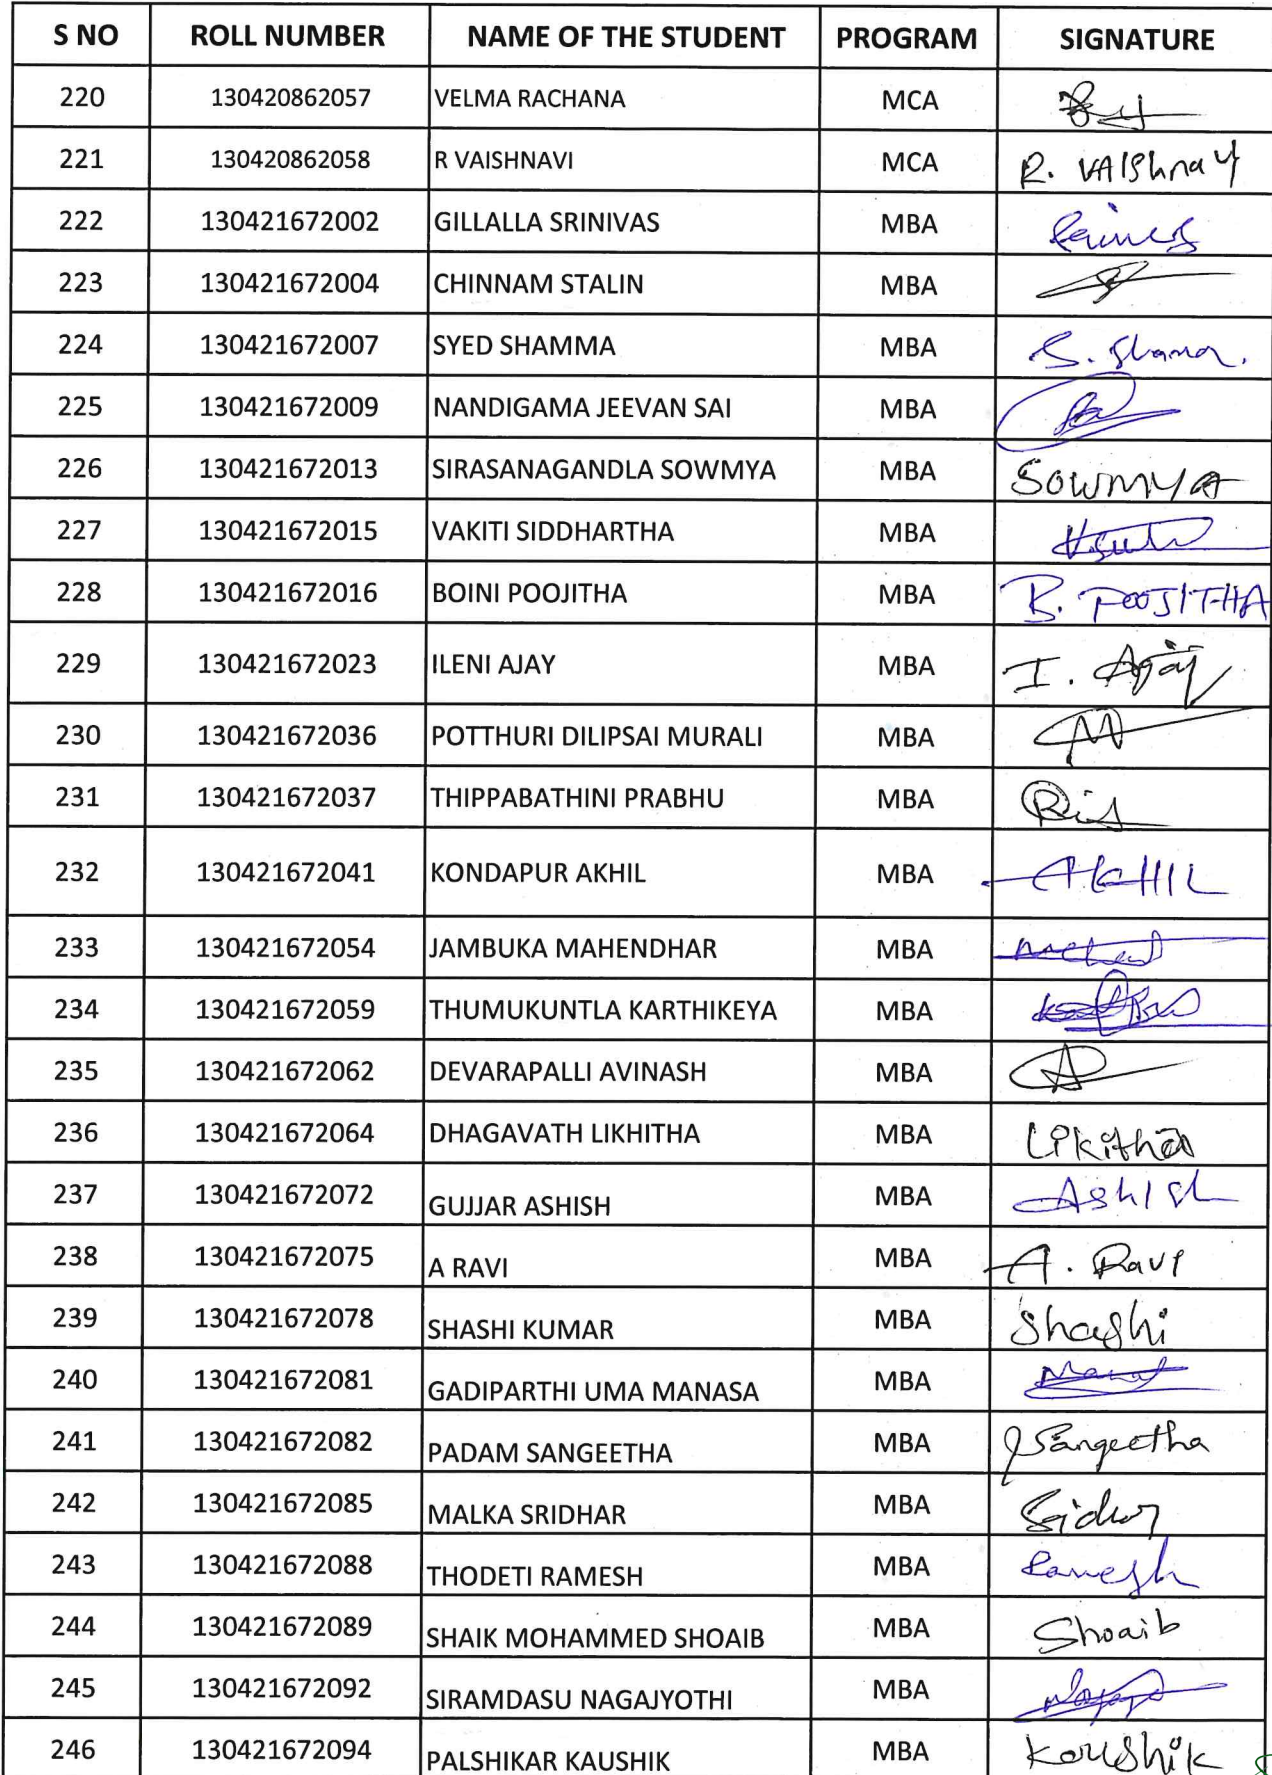 S NO ROLL NUMBER NAME OF THE STUDENT PROGRAM SIGNATURE
220 130420862057 VELMA RACHANA MCA
221 130420862058 R VAISHNAVI MCA R. VAIShnavi
222 130421672002 GILLALLA SRINIVAS MBA
223 130421672004 CHINNAM STALIN MBA
224 130421672007 SYED SHAMMA MBA
225 130421672009 NANDIGAMA JEEVAN SAI MBA
226 130421672013 SIRASANAGANDLA SOWMYA MBA SOWMYA
227 130421672015 VAKITI SIDDHARTHA MBA
228 130421672016 BOINI POOJITHA MBA B. POOJITHA
229 130421672023 ILENI AJAY MBA I. Ajay
230 130421672036 POTTHURI DILIPSAI MURALI MBA
231 130421672037 THIPPABATHINI PRABHU MBA
232 130421672041 KONDAPUR AKHIL MBA AKHIL
233 130421672054 JAMBUKA MAHENDHAR MBA
234 130421672059 THUMUKUNTLA KARTHIKEYA MBA
235 130421672062 DEVARAPALLI AVINASH MBA
236 130421672064 DHAGAVATH LIKHITHA MBA Likitha
237 130421672072 GUJJAR ASHISH MBA Ashish
238 130421672075 A RAVI MBA A. Ravi
239 130421672078 SHASHI KUMAR MBA Shashi
240 130421672081 GADIPARTHI UMA MANASA MBA
241 130421672082 PADAM SANGEETHA MBA Sangeetha
242 130421672085 MALKA SRIDHAR MBA
243 130421672088 THODETI RAMESH MBA Ramesh
244 130421672089 SHAIK MOHAMMED SHOAIB MBA Shoaib
245 130421672092 SIRAMDASU NAGAJYOTHI MBA
246 130421672094 PALSHIKAR KAUSHIK MBA Koushik